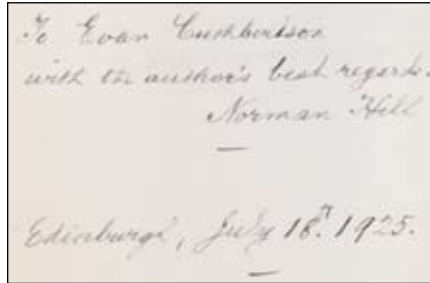 To Evan Cuthbertson
with the author's best regards.
Norman Hill
Edinburgh, July 18th. 1925.